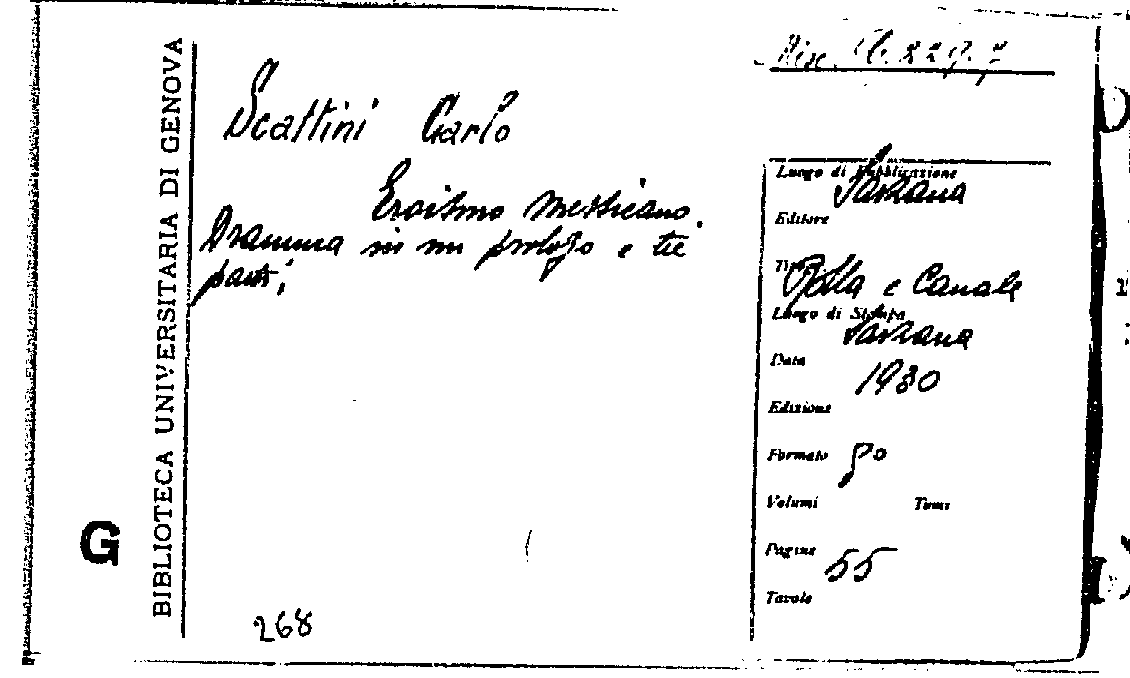 BIBLIOTECA UNIVERSITARIA DI GENOVA
G
Scattini Carlo
Eroismo Messicano.
Dramma in un prologo e tre
parti;
268
Misc. 16.229.7
Luogo di Pubblicazione
Sarzana
Editore
Tip.
e Canale
Luogo di Stampa
Sarzana
Data
1930
Edizione
Formato 8°
Volumi Tomi
Pagine 55
Tavole